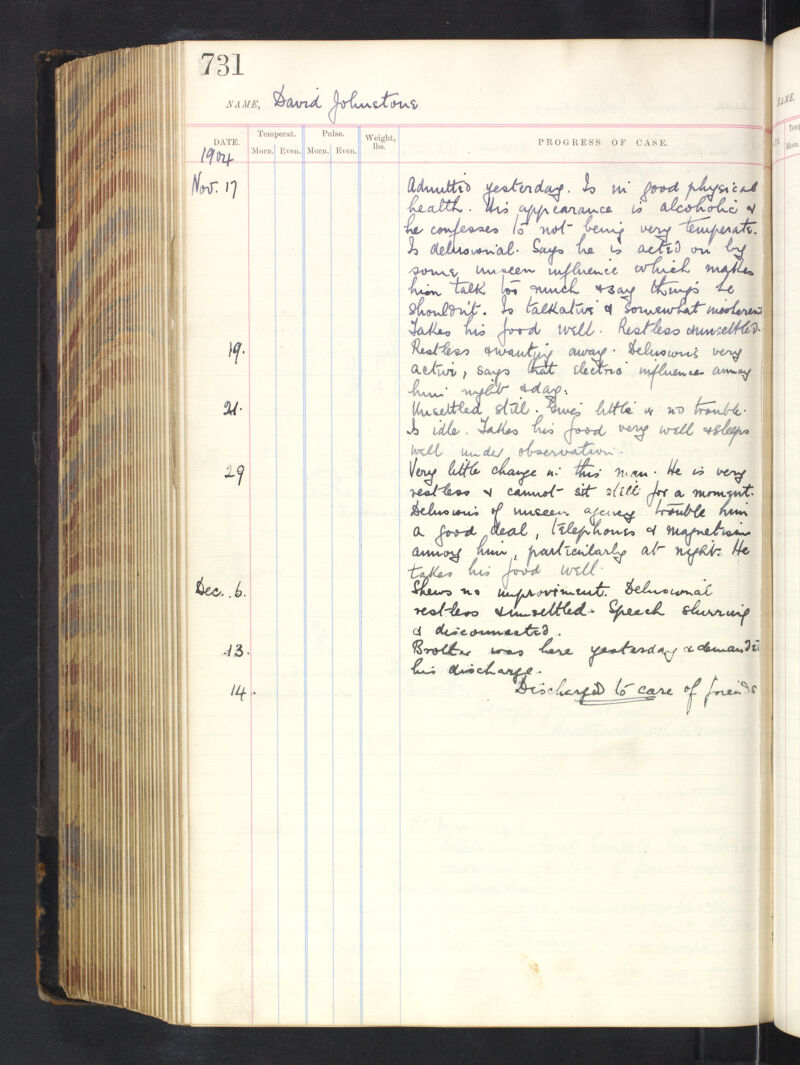 731
NAME, David Johnstone
DATE. Temperat. Pulse. Weight, lbs. PROGRESS OF CASE.
Morn. Even. Morn. Even.
1904
Nov. 17 Admitted yesterday. Is in good physical
health. His appearance is alcoholic &
he confesses to not being very temperate.
Is delusional. Says he is acted on by
some unseen influence which makes
him talk too much & say things he
shouldn't. Is talkative & somewhat incoherent
Takes his food well. Restless & unsettled.
19. Restless & wanting away. Delusions very
active, says that electric influences annoy
him night & day.
21. Unsettled still. Gives little or no trouble.
Is idle. Takes his food very well & sleeps
well under observation.
29 Very little change in this man. He is very
restless & cannot sit still for a moment.
Delusions of unseen agency trouble him
a good deal, telephones & magnetism
annoy him, particularly at night. He
takes his food well.
Dec. 6. Shews no improvement. Delusional
restless & unsettled. Speech slurring
& disconnected.
13. Brother was here yesterday & demanded
his discharge.
14. Discharged to care of friends
NAME,
Temp
Morn.